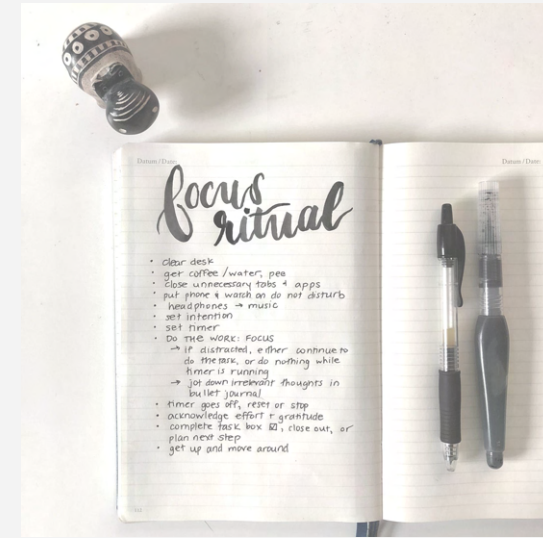 Datum / Date:
Datum / Date:
focus
ritual
• clear desk
• get coffee / water, pee
• close unnecessary tabs + apps
• put phone & watch on do not disturb
• headphones → music
• set intention
• set timer
• DO THE WORK: FOCUS
→ if distracted, either continue to
do the task, or do nothing while
timer is running
→ jot down irrelevant thoughts in
bullet journal
• timer goes off, reset or stop
• acknowledge effort + gratitude
• complete task box ☑, close out, or
plan next step
• get up and move around